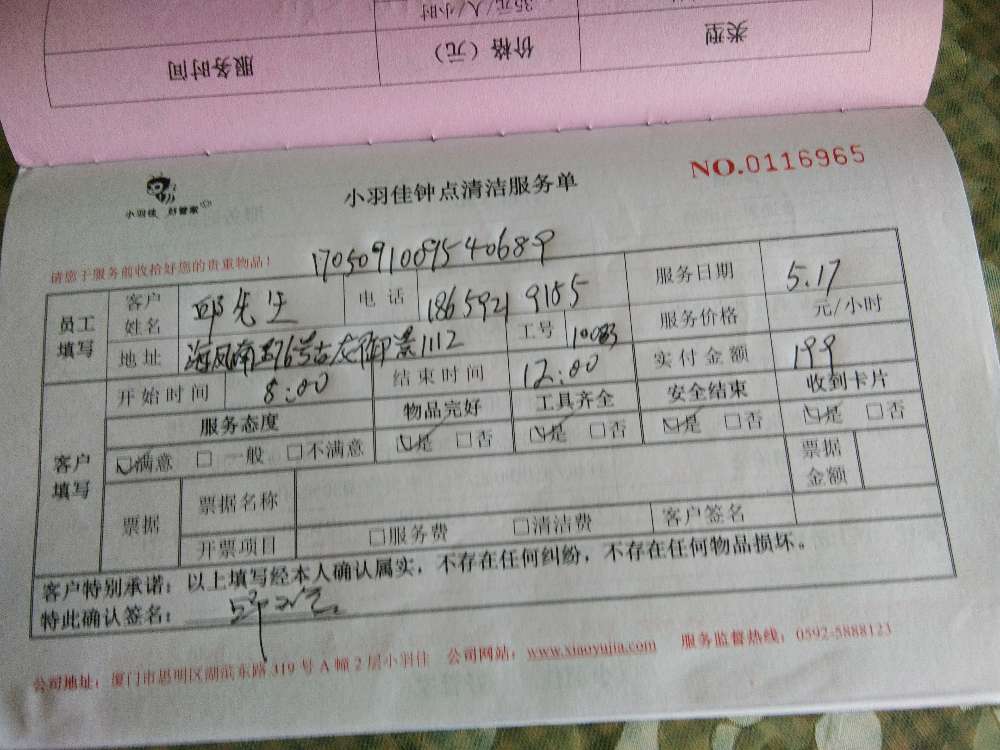 35元/人/小时
类型 价格（元） 服务时间
NO.0116965
小羽佳 好管家
小羽佳钟点清洁服务单
请您于服务前收拾好您的贵重物品！ 1705091089540689
员工填写 客户姓名 邱先生 电话 18659219185 服务日期 5.17
地址 工号 服务价格 元/小时
开始时间 8:00 结束时间 12:00 实付金额 199
客户填写 服务态度 物品完好 工具齐全 安全结束 收到卡片
☑满意 □一般 □不满意 ☑是 □否 ☑是 □否 ☑是 □否 ☑是 □否
票据 票据名称 票据金额
开票项目 □服务费 □清洁费 客户签名
客户特别承诺：以上填写经本人确认属实，不存在任何纠纷，不存在任何物品损坏。
特此确认签名：
公司地址：厦门市思明区湖滨东路319号A幢2层小羽佳 公司网站：www.xiaoyujia.com 服务监督热线：0592-5888123